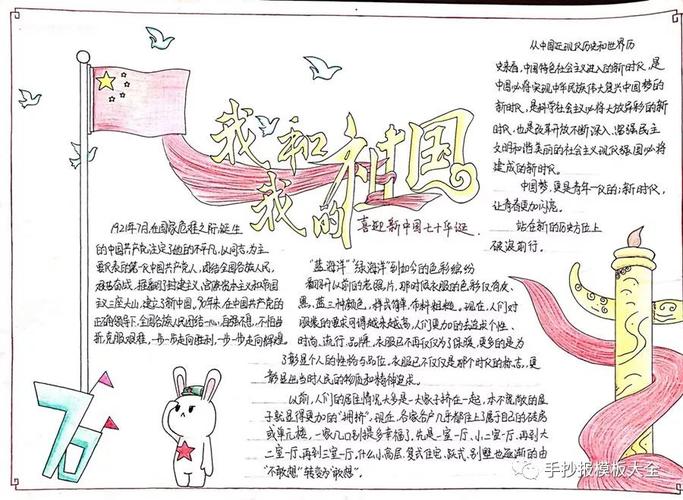 我和
我的祖国
喜迎新中国七十年诞.
从中国近现代历史和世界历
史来看,中国特色社会主义进入的新时代,是
中国必将实现中华民族伟大复兴中国梦的
新时代,是科学社会主义必将大放异彩的新
时代,也是改革开放不断深入、富强民主
文明和谐美丽的社会主义现代强国必将
建成的新时代。
中国梦,更是青年一代的;新时代,
让青春更加闪亮。
站在新的历史方位上
破浪前行。
1921年7月,在国家危难之际,诞生
的中国共产党,注定了他的不平凡,以同志,为主
要代表的第一代中国共产党人,团结全国各族人民,
艰苦奋战,推翻了封建主义、官僚资本主义和帝国
主义三座大山,建立了新中国。90年来,在中国共产党的
正确领导下,全国各族人民团结一心,自强不息,不怕曲
折,克服艰难,一步一步走向胜利,一步一步走向辉煌。
"蓝海洋""绿海洋"到如今的色彩缤纷
翻开以前的老照片,那时候衣服的色彩仅有灰、
黑、蓝三种颜色,样式简单、布料粗糙。现在,人们对
服装的要求可谓越来越高,人们更加的去追求个性、
时尚、流行、品牌,衣服已不再仅仅为了保暖,更多的是为
了彰显个人的性格与品位。衣服已不仅仅是那个时代的标志,更
彰显出当时人民的物质和精神追求。
以前,人们的居住情况大多是一大家子挤在一起,本不宽敞的屋
子就显得更加的"拥挤",现在,各家各户几乎都住上属于自己的砖房
或单元楼,一家几口别提多幸福!先是一室一厅、小二室一厅,再到大
二室一厅、再到三室一厅,什么小高层、复式住宅、跃式、别墅也逐渐的由
"不敢想"转变为"敢想"。
70
手抄报模板大全